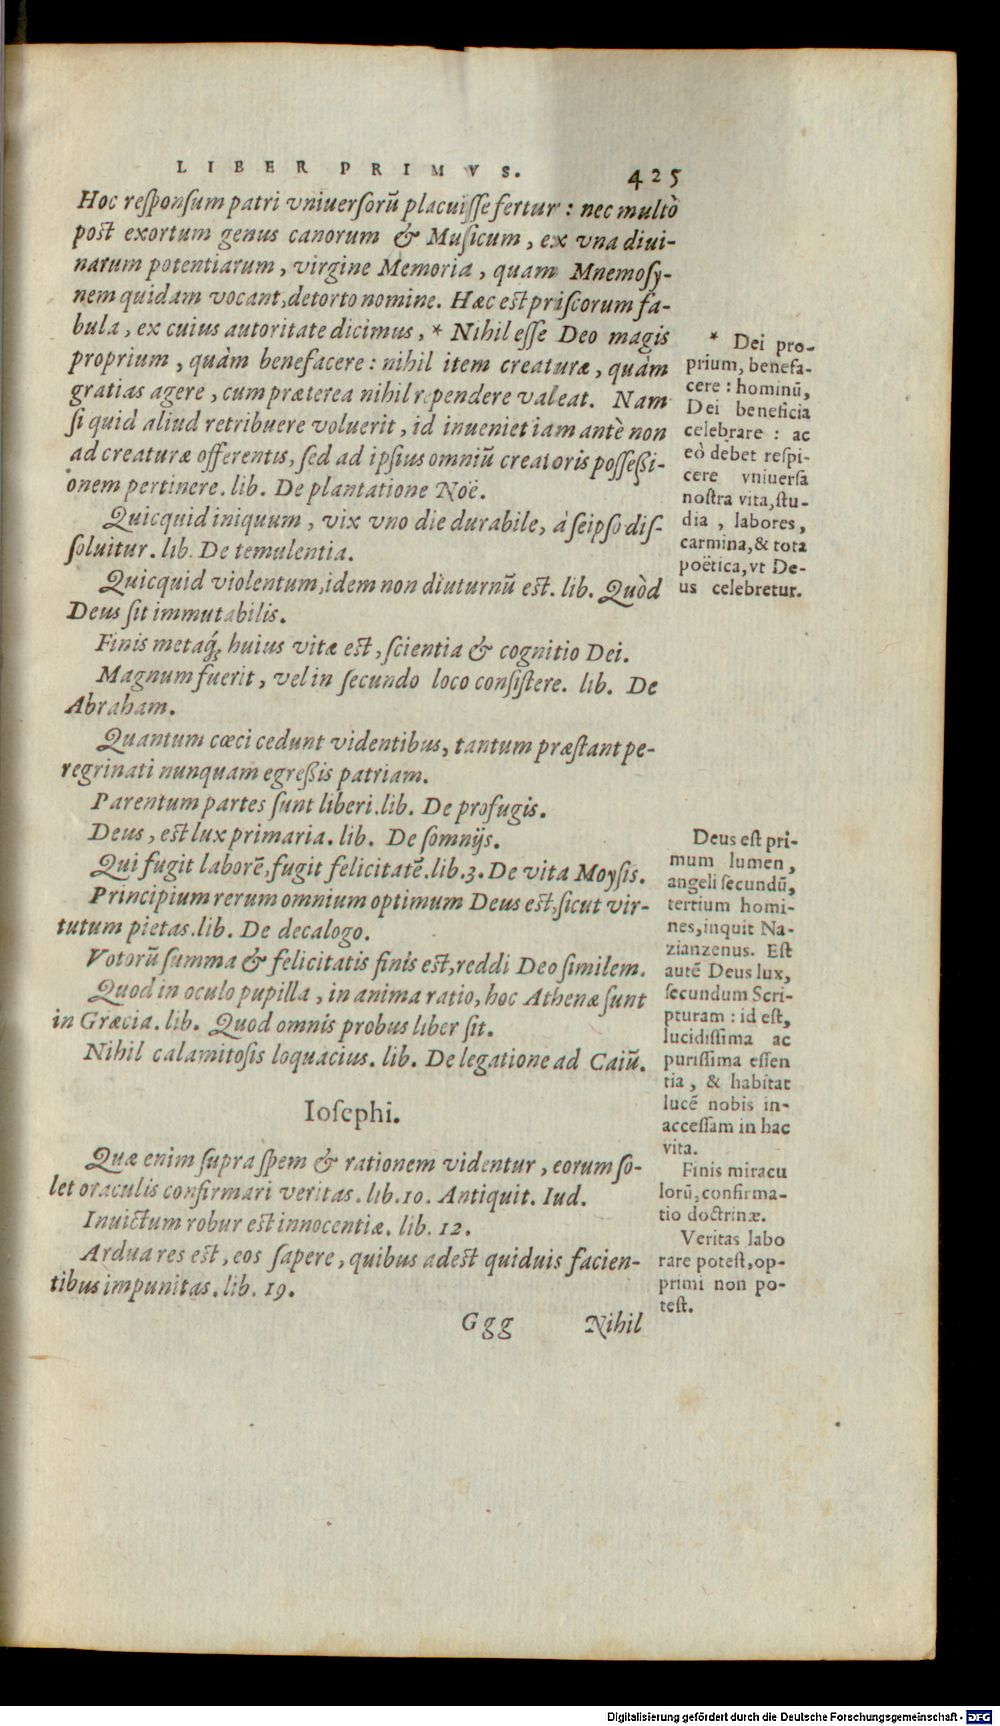 LIBER PRIMVS. 425
Hoc responsum patri vniuersorũ placuisse fertur : nec multò
post exortum genus canorum & Musicum, ex vna diui-
narum potentiarum, virgine Memoria, quam Mnemosy-
nem quidam vocant, detorto nomine. Hæc est priscorum fa-
bula, ex cuius autoritate dicimus, * Nihil esse Deo magis
proprium, quàm benefacere: nihil item creaturæ, quàm
gratias agere, cum præterea nihil rependere valeat. Nam
si quid aliud retribuere voluerit, id inueniet iam antè non
ad creaturæ offerentis, sed ad ipsius omniũ creatoris possessi-
onem pertinere. lib. De plantatione Noë.
Quicquid iniquum, vix vno die durabile, à seipso dis-
soluitur. lib. De temulentia.
Quicquid violentum, idem non diuturnũ est. lib. Quòd
Deus sit immutabilis.
Finis metaq́; huius vitæ est, scientia & cognitio Dei.
Magnum fuerit, vel in secundo loco consistere. lib. De
Abraham.
Quantum cœci cedunt videntibus, tantum præstant pe-
regrinati nunquam egressis patriam.
Parentum partes sunt liberi. lib. De profugis.
Deus, est lux primaria. lib. De somnijs.
Qui fugit laborẽ, fugit felicitatẽ. lib. 3. De vita Moysis.
Principium rerum omnium optimum Deus est, sicut vir-
tutum pietas. lib. De decalogo.
Votorũ summa & felicitatis finis est, reddi Deo similem.
Quod in oculo pupilla, in anima ratio, hoc Athenæ sunt
in Græcia. lib. Quod omnis probus liber sit.
Nihil calamitosis loquacius. lib. De legatione ad Caiũ.
Iosephi.
Quæ enim supra spem & rationem videntur, eorum so-
let oraculis confirmari veritas. lib. 10. Antiquit. Iud.
Inuictum robur est innocentiæ. lib. 12.
Ardua res est, eos sapere, quibus adest quiduis facien-
tibus impunitas. lib. 19.
Ggg Nihil
* Dei pro-
prium, benefa-
cere : hominũ,
Dei beneficia
celebrare : ac
eò debet respi-
cere vniuersa
nostra vita, stu-
dia, labores,
carmina, & tota
poëtica, vt De-
us celebretur.
Deus est pri-
mum lumen,
angeli secundũ,
tertium homi-
nes, inquit Na-
zianzenus. Est
autẽ Deus lux,
secundum Scri-
pturam : id est,
lucidissima ac
purissima essen
tia, & habitat
lucẽ nobis in-
accessam in hac
vita.
Finis miracu
lorũ, confirma-
tio doctrinæ.
Veritas labo
rare potest, op-
primi non po-
test.
Digitalisierung gefördert durch die Deutsche Forschungsgemeinschaft - DFG